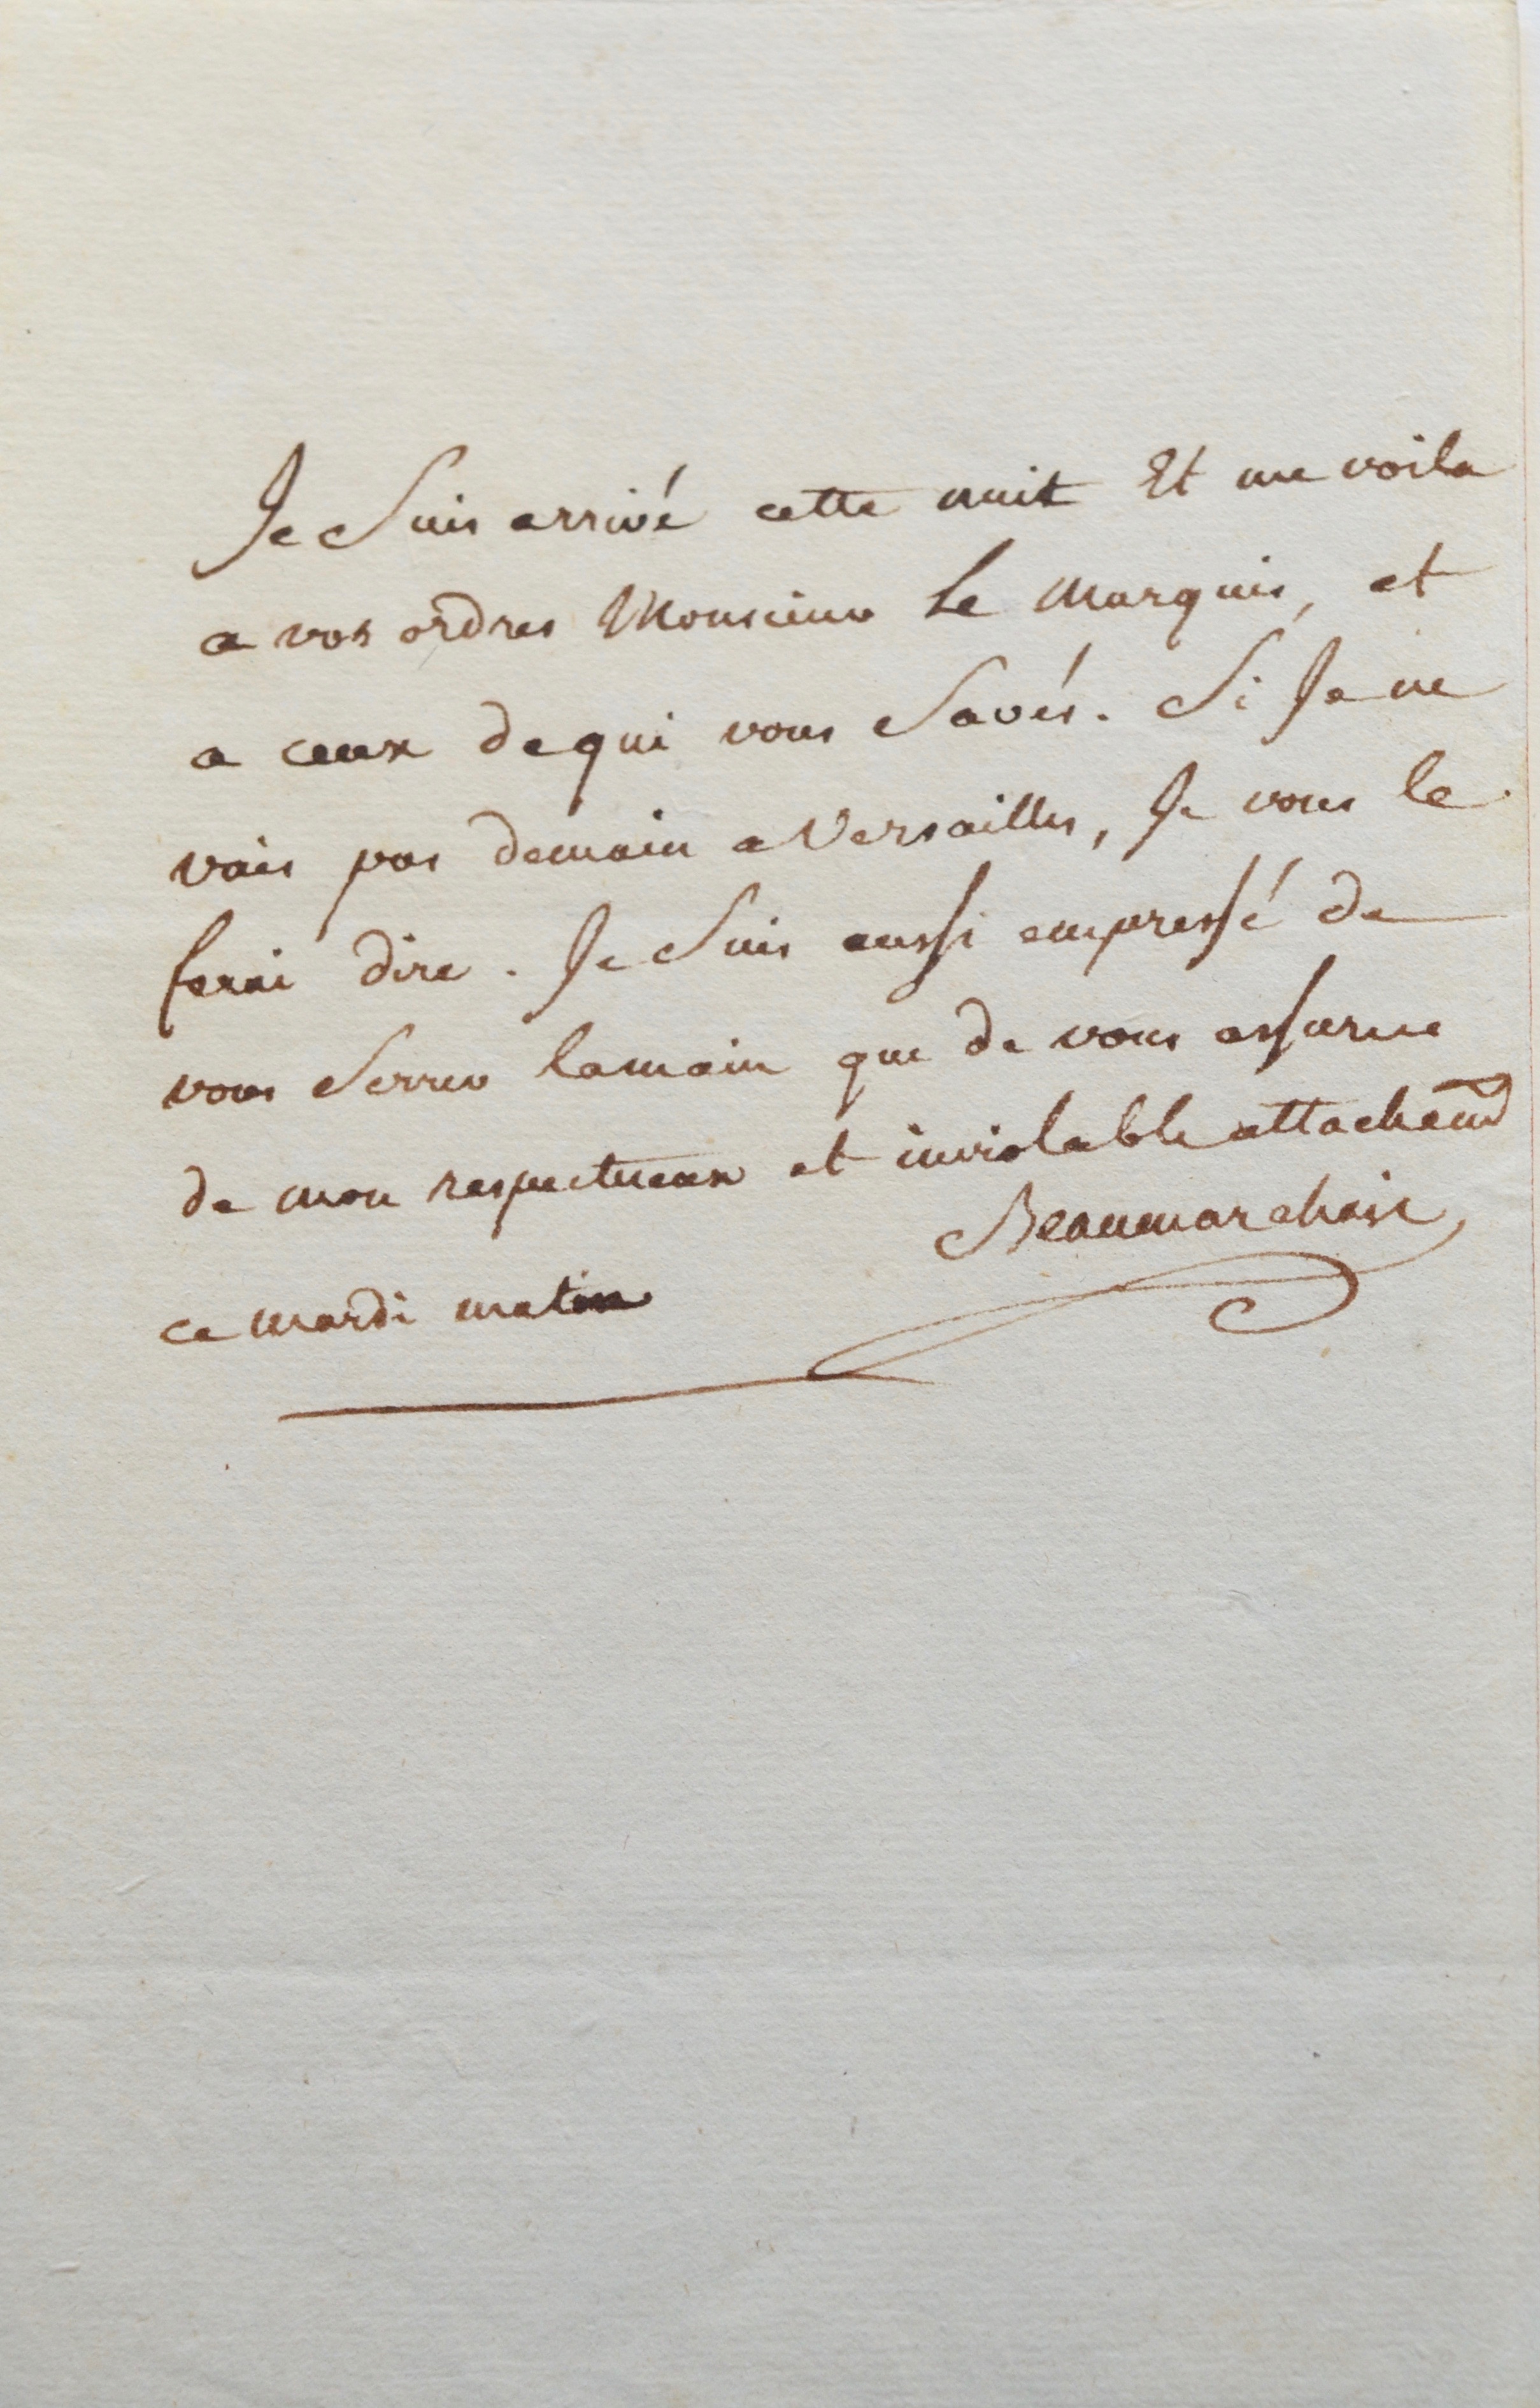 Je Suis arrivé cette nuit Et me voila
a vos ordres Monsieur Le Marquis, et
a ceux de qui vous Savés. Si Je ne
vais pas demain a Versailles, Je vous le
ferai dire. Je Suis aussi empressé de
vous Serrer la main que de vous assurer
de mon respectueux et inviolable attachemt
Beaumarchais
ce mardi matin